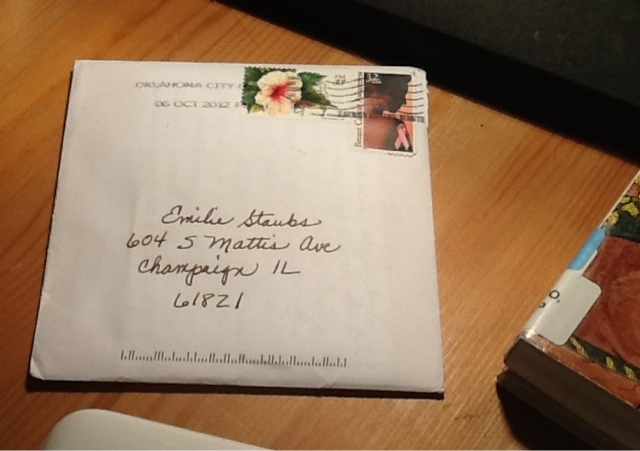 OKLAHOMA CITY
06 OCT 2012 P
32
Breast Cancer
Emilie Staubs
604 S Mattis Ave
Champaign IL
61821